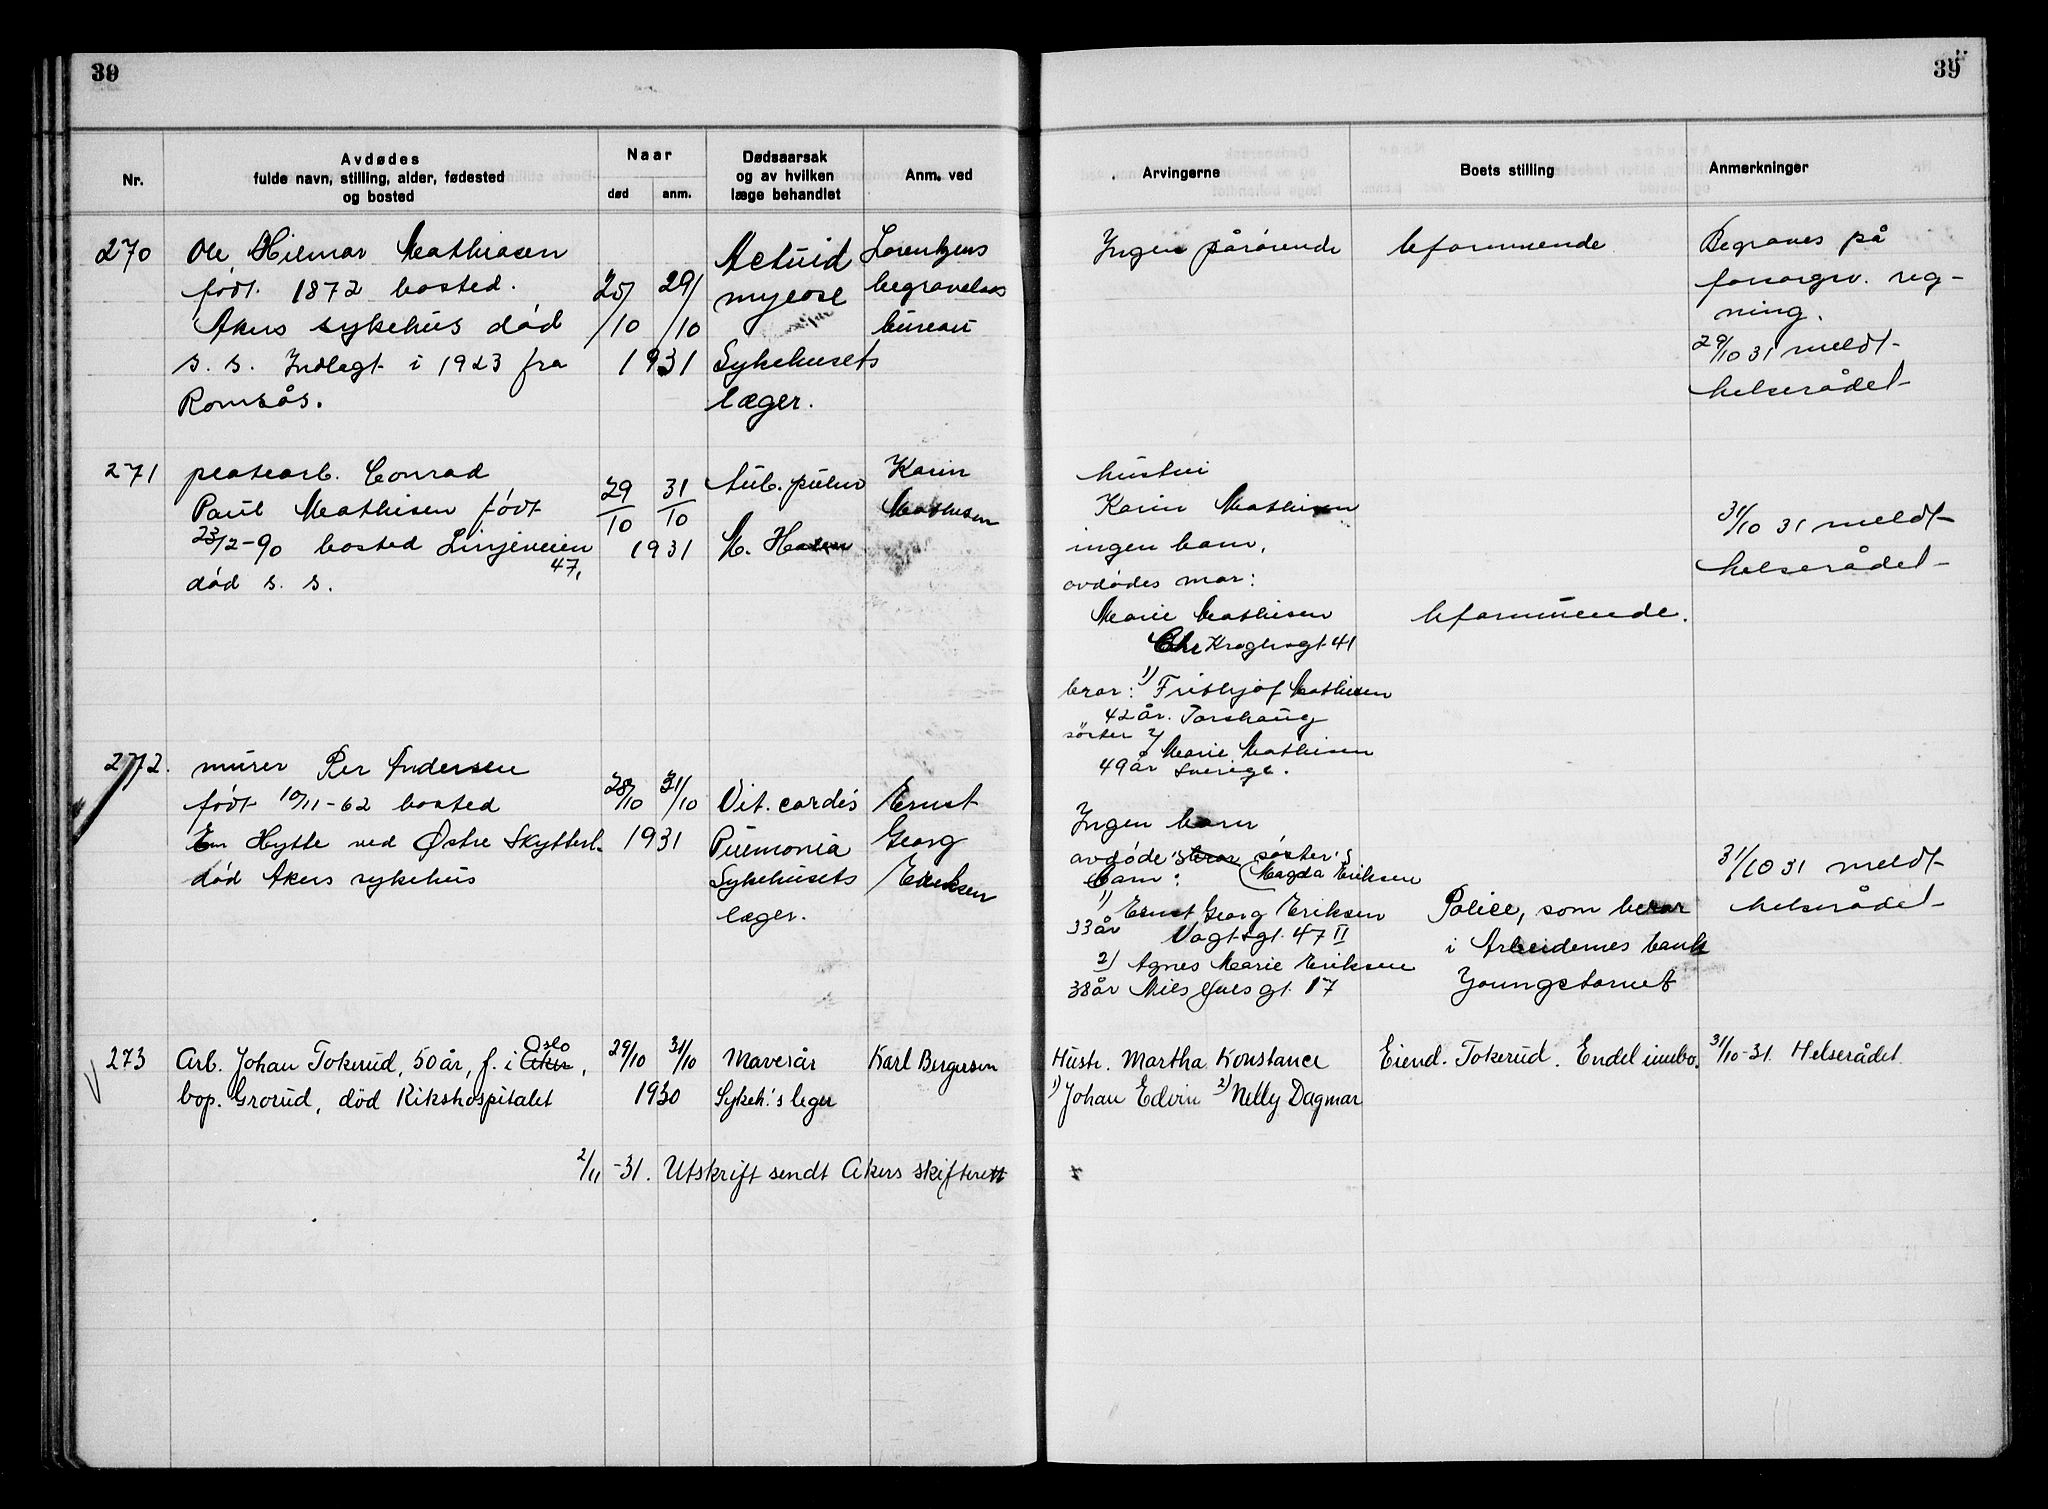 39
39
Nr.
Avdødes
fulde navn, stilling, alder, fødested
og bosted
Naar
død
anm.
Dødsaarsak
og av hvilken
læge behandlet
Anm. ved
Arvingerne
Boets stilling
Anmerkninger
270
Ole Hilmar Mathiasen
født. 1872 bosted.
Akers sykehus død
s. s. Indlagt i 1923 fra
Romsås.
29/
/10 /10
1931
myeose
Sykehusets
læger.
Lorentzens
begravelses
bureau
Ingen pårørende
Uformuende
Begraves på
forsorgsv. reg-
ning.
29/10 31 meldt
helserådet
271
Conrad
Paul Mathisen født
23/2-90 bosted Linjeveien
47,
død s. s.
29/10 31/10
1931
Tub. pulm
M.
Karin
Mathisen
hustru
Karin Mathisen
ingen barn,
avdødes mor:
Marie Mathisen
Chr Kroghsgt 41
bror: 1) Frithjof Mathisen
42 år. Torshaug
söster 2) Marie Mathisen
49 år Sverige.
Uformuende.
31/10 31 meldt
helserådet
272.
murer Per Andersen
født 10/11-62 bosted
En Hytte ved Østre Skytterl.
død Akers sykehus
28/10 31/10
1931
Vit. cordis
Pnemonia
Sykehusets
læger.
Ernst
Georg
Eriksen
Ingen barn
avdøde's bror søster's
barn: (Magda Eriksen
1) Ernst Georg Eriksen
33 år Vogtsgt. 47 II
2) Agnes Marie Eriksen
38 år Niels Juels gt. 17
Police, som beror
i Arbeidernes bank
Youngstorvet
31/10 31 meldt
helserådet
273
Oslo
Arb. Johan Tokerud, 50 år, f. i Aker,
bop. Grorud, død Rikshospitalet
29/10 31/10
1930
Mavesår
Sykeh.'s leger
Karl Bergersen
Hustr. Martha Konstance
1) Johan Edvin 2) Nelly Dagmar
Eiend. Tokerud. Endel innbo.
31/10-31. Helserådet
2/11-31. Utskrift sendt Akers skifterett